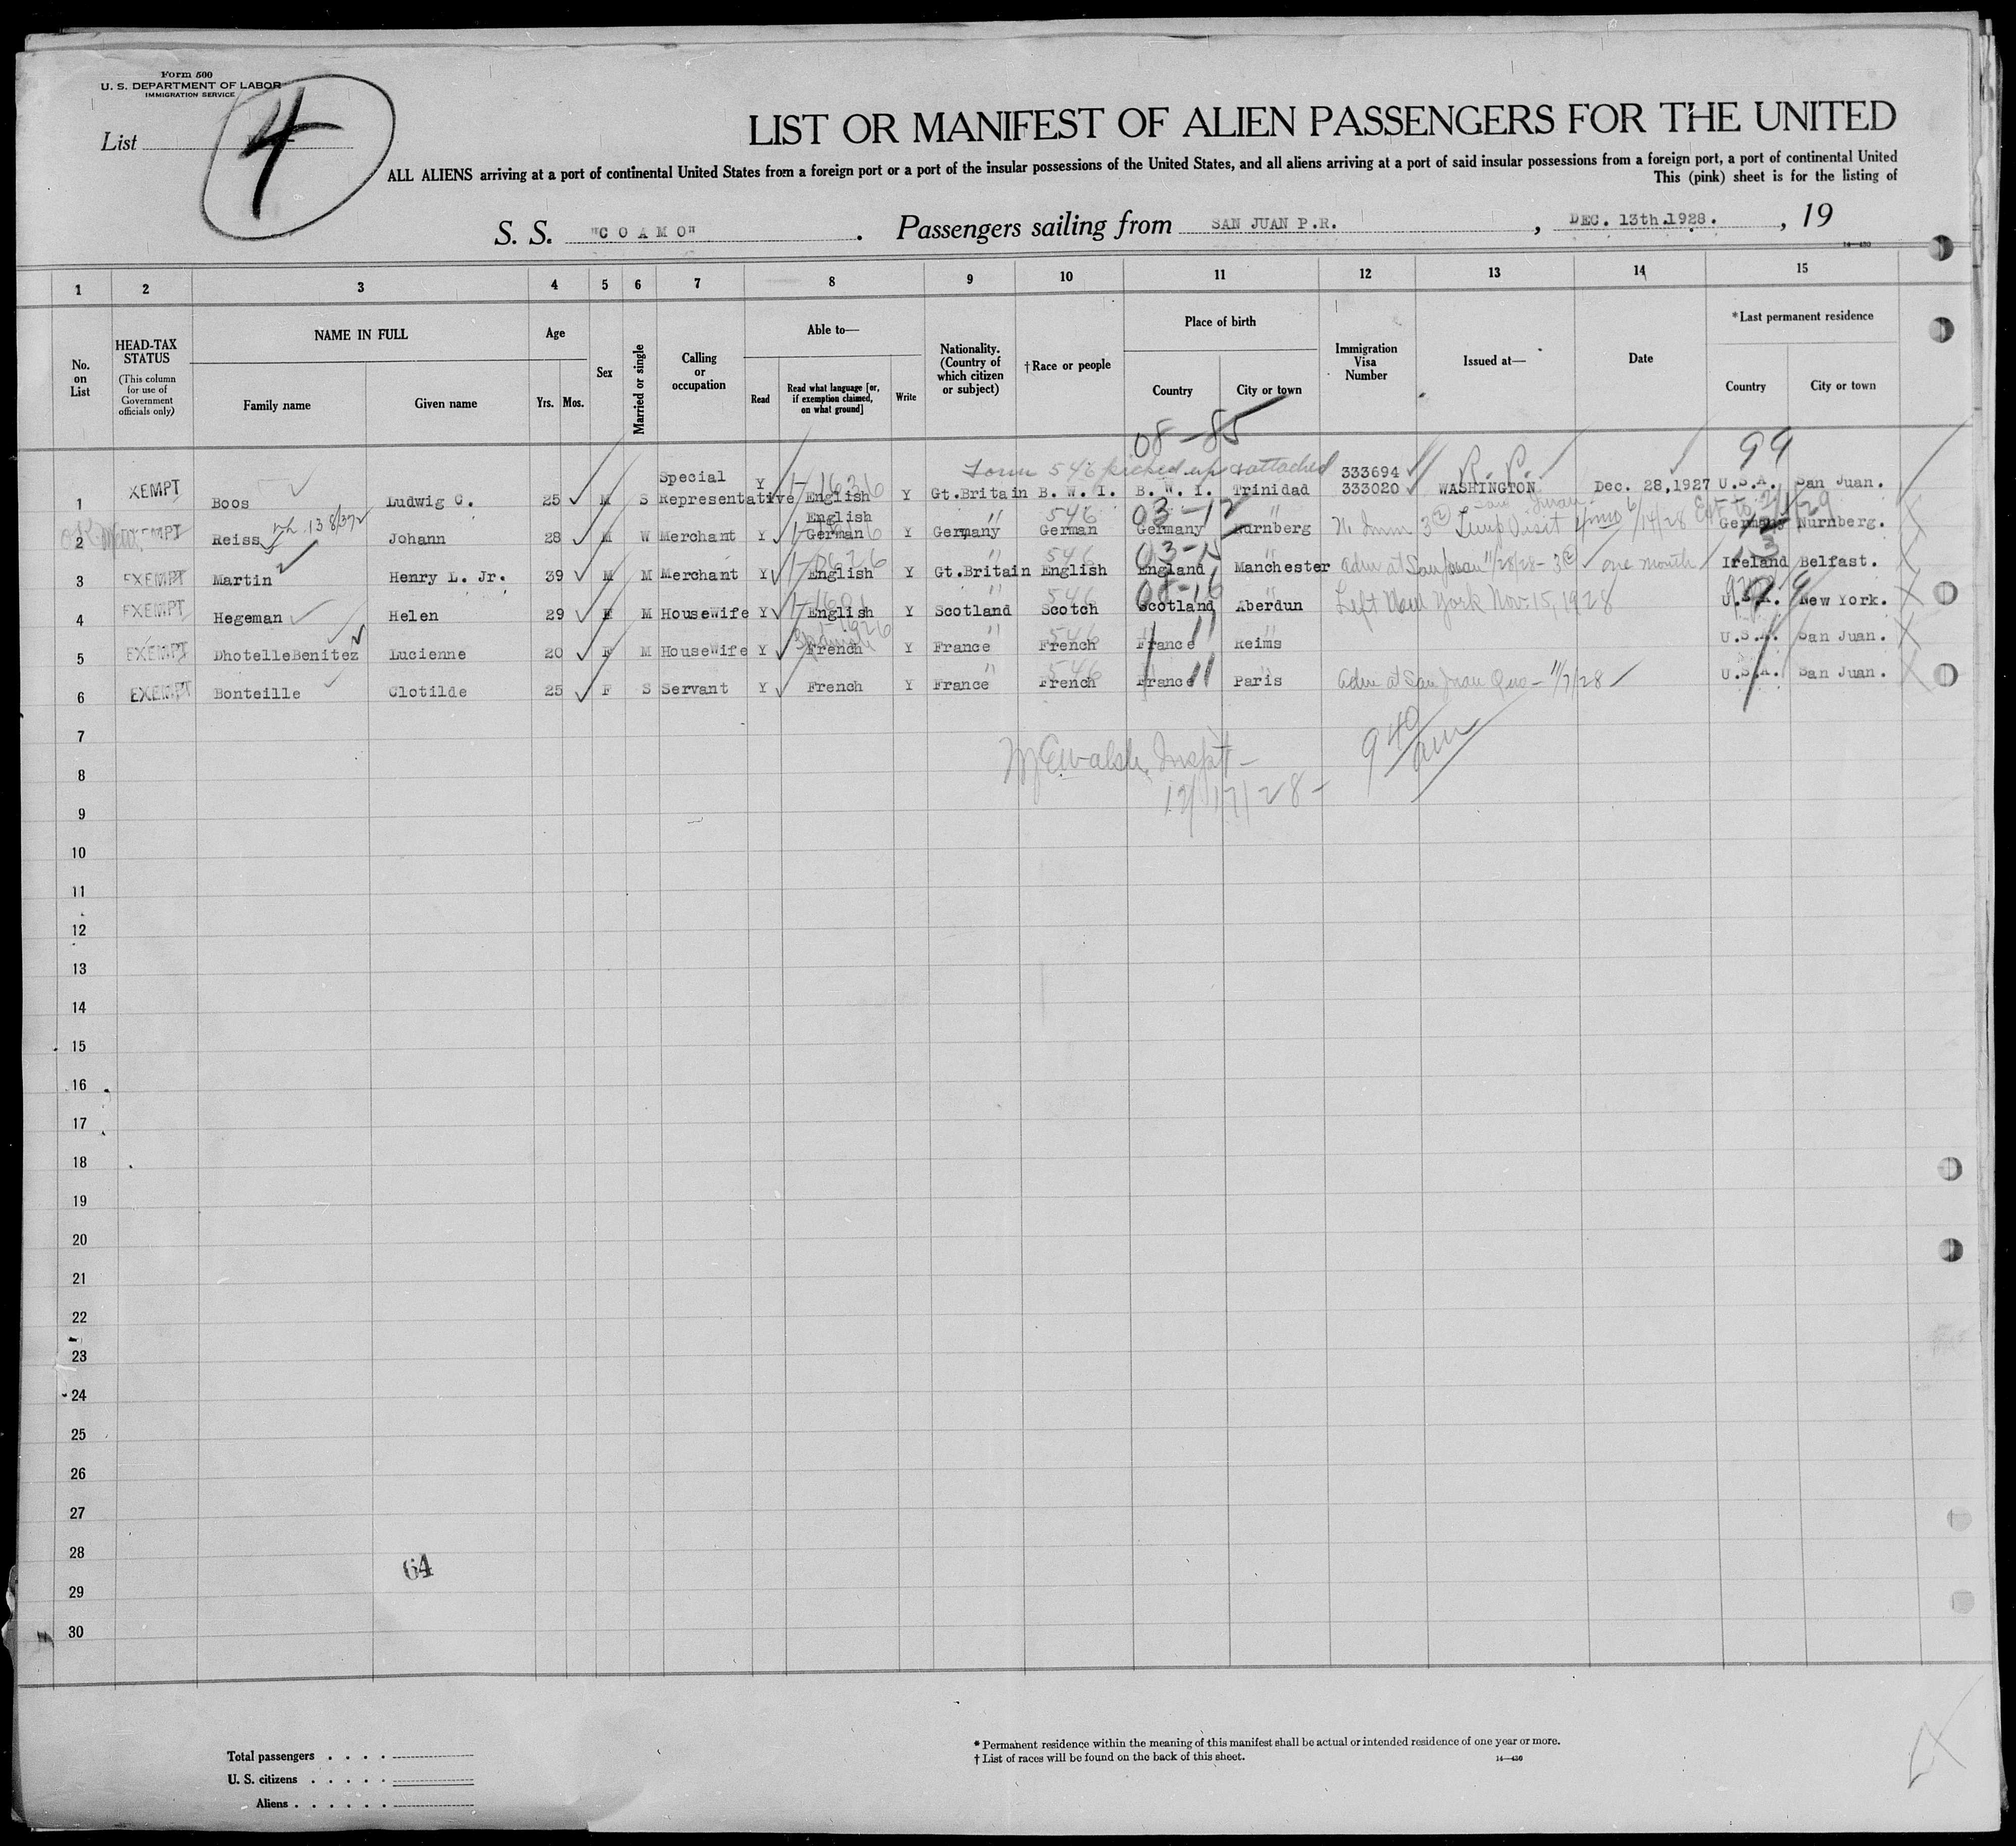 Form 500
U. S. DEPARTMENT OF LABOR
IMMIGRATION SERVICE
List 4
LIST OR MANIFEST OF ALIEN PASSENGERS FOR THE UNITED
ALL ALIENS arriving at a port of continental United States from a foreign port or a port of the insular possessions of the United States, and all aliens arriving at a port of said insular possessions from a foreign port, a port of continental United
This (pink) sheet is for the listing of
S. S. "COAMO". Passengers sailing from SAN JUAN P.R. , DEC. 13th.1928. , 19
14—430
1 2 3 4 5 6 7 8 9 10 11 12 13 14 15
No. on List
HEAD-TAX STATUS
(This column for use of Government officials only)
NAME IN FULL
Family name Given name
Age
Yrs. Mos.
Sex
Married or single
Calling or occupation
Able to—
Read
Read what language [or, if exemption claimed, on what ground]
Write
Nationality. (Country of which citizen or subject)
†Race or people
Place of birth
Country City or town
Immigration Visa Number
Issued at—
Date
*Last permanent residence
Country City or town
08-85 99
Form 546 picked up & attached 333694 R. P.
1 XEMPT Boos Ludwig C. 25 M S Special Representative Y English Y Gt.Britain B. W. I. B. W. I. Trinidad 333020 WASHINGTON Dec. 28,1927 U.S.A. San Juan.
546 03-12
2 EMPT Reiss Johann 28 M W Merchant Y English German Y Germany German Germany Nurnberg Temp Visit 6/14/28 Ext to Germany Nurnberg.
546
3 EXEMPT Martin Henry L. Jr. 39 M M Merchant Y English Y Gt.Britain English England Manchester adm at San Juan 11/28/28 - one month Ireland Belfast.
546 08-16
4 EXEMPT Hegeman Helen 29 F M Housewife Y English Y Scotland Scotch Scotland Aberdun Left New York Nov. 15, 1928 U.S.A. New York.
546
5 EXEMPT DhotelleBenitez Lucienne 20 F M Housewife Y Spanish French Y France French France Reims U.S.A. San Juan.
546
6 EXEMPT Bonteille Clotilde 25 F S Servant Y French Y France French France Paris adm at San Juan 11/7/28 U.S.A. San Juan.
7
9 40 am
8
12/17/28
9
10
11
12
13
14
15
16
17
18
19
20
21
22
23
24
25
26
27
28
64
29
30
Total passengers . . . .
U. S. citizens . . . . .
Aliens . . . . . .
* Permanent residence within the meaning of this manifest shall be actual or intended residence of one year or more.
† List of races will be found on the back of this sheet.
14—430